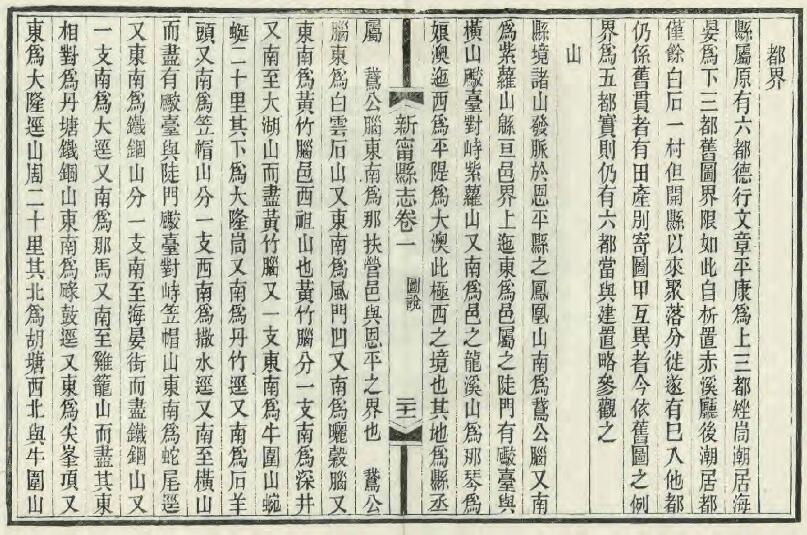 都界
縣屬原有六都德行文章平康爲上三都矬峝潮居海
晏爲下三都舊圖界限如此自析置赤溪廳後潮居都
僅餘白石一村但開縣以來聚落分徙遂有已入他都
仍係舊貫者有田產別寄圖甲互異者今依舊圖之例
界爲五都實則仍有六都當與建置略參觀之
山
縣境諸山發脈於恩平縣之鳳凰山南爲鵞公腦又南
爲紫蘿山緜亘邑界上迤東爲邑屬之陡門有礮臺與
橫山礮臺對峙紫蘿山又南爲邑之龍溪山爲那琴爲
娘澳迤西爲平隄爲大澳此極西之境也其地爲縣丞
新甯縣志卷一
圖說
二十一
屬 鵞公腦東南爲那扶營邑與恩平之界也 鵞公
腦東爲白雲石山又東南爲風門凹又南爲曬穀腦又
東南爲黃竹腦邑西祖山也黃竹腦分一支南爲深井
又南至大湖山而盡黃竹腦又一支東南爲牛圍山蜿
蜒二十里其下爲大隆峝又南爲丹竹逕又南爲石羊
頭又南爲笠帽山分一支西南爲撒水逕又南至橫山
而盡有礮臺與陡門礮臺對峙笠帽山東南爲蛇尾逕
又東南爲鐵錮山分一支南至海晏街而盡鐵錮山又
一支南爲大逕又南爲那馬又南至雞籠山而盡其東
相對爲丹塘鐵錮山東南爲磜鼓逕又東爲尖峯頂又
東爲大隆逕山周二十里其北爲胡塘西北與牛圍山